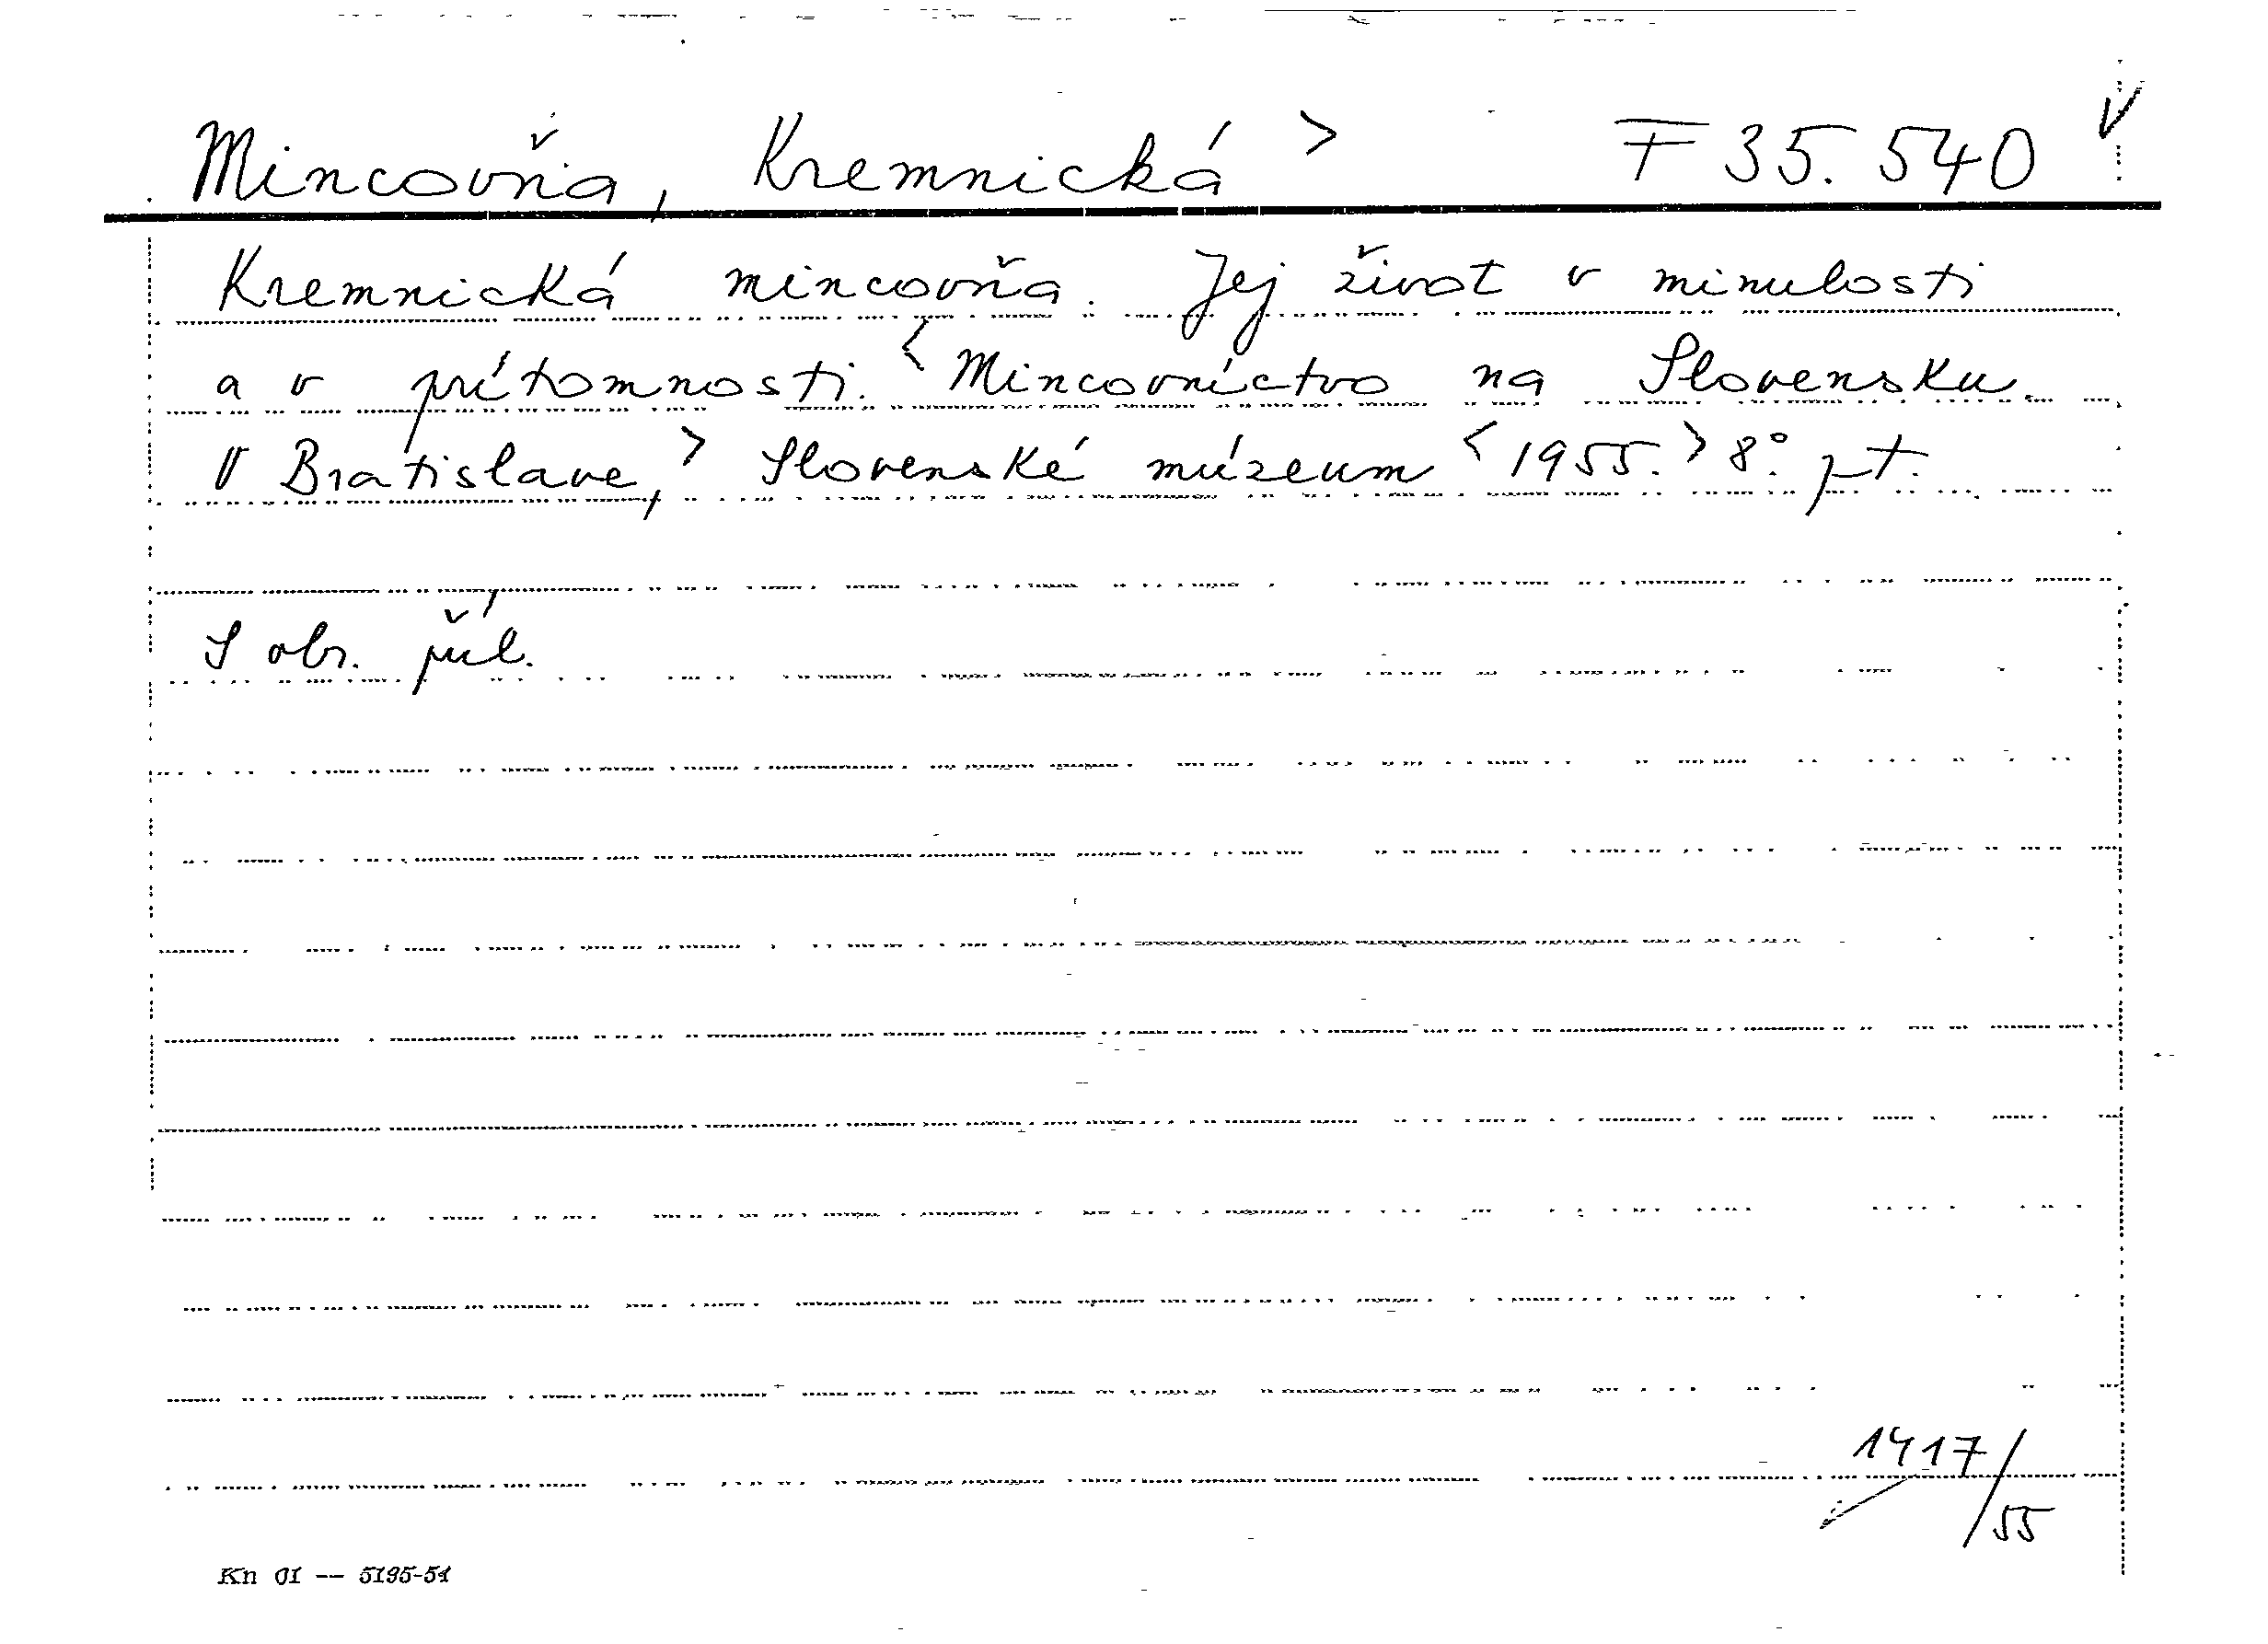 Mincovňa, Kremnická > F 35.540 V
Kremnická mincovňa. Jej život v minulosti
a v prítomnosti. < Mincovníctvo na Slovensku.
V Bratislave, > Slovenské múzeum < 1955. > 8°. pt.
S obr. příl.
1417/55
Kn 01 -- 5195-54